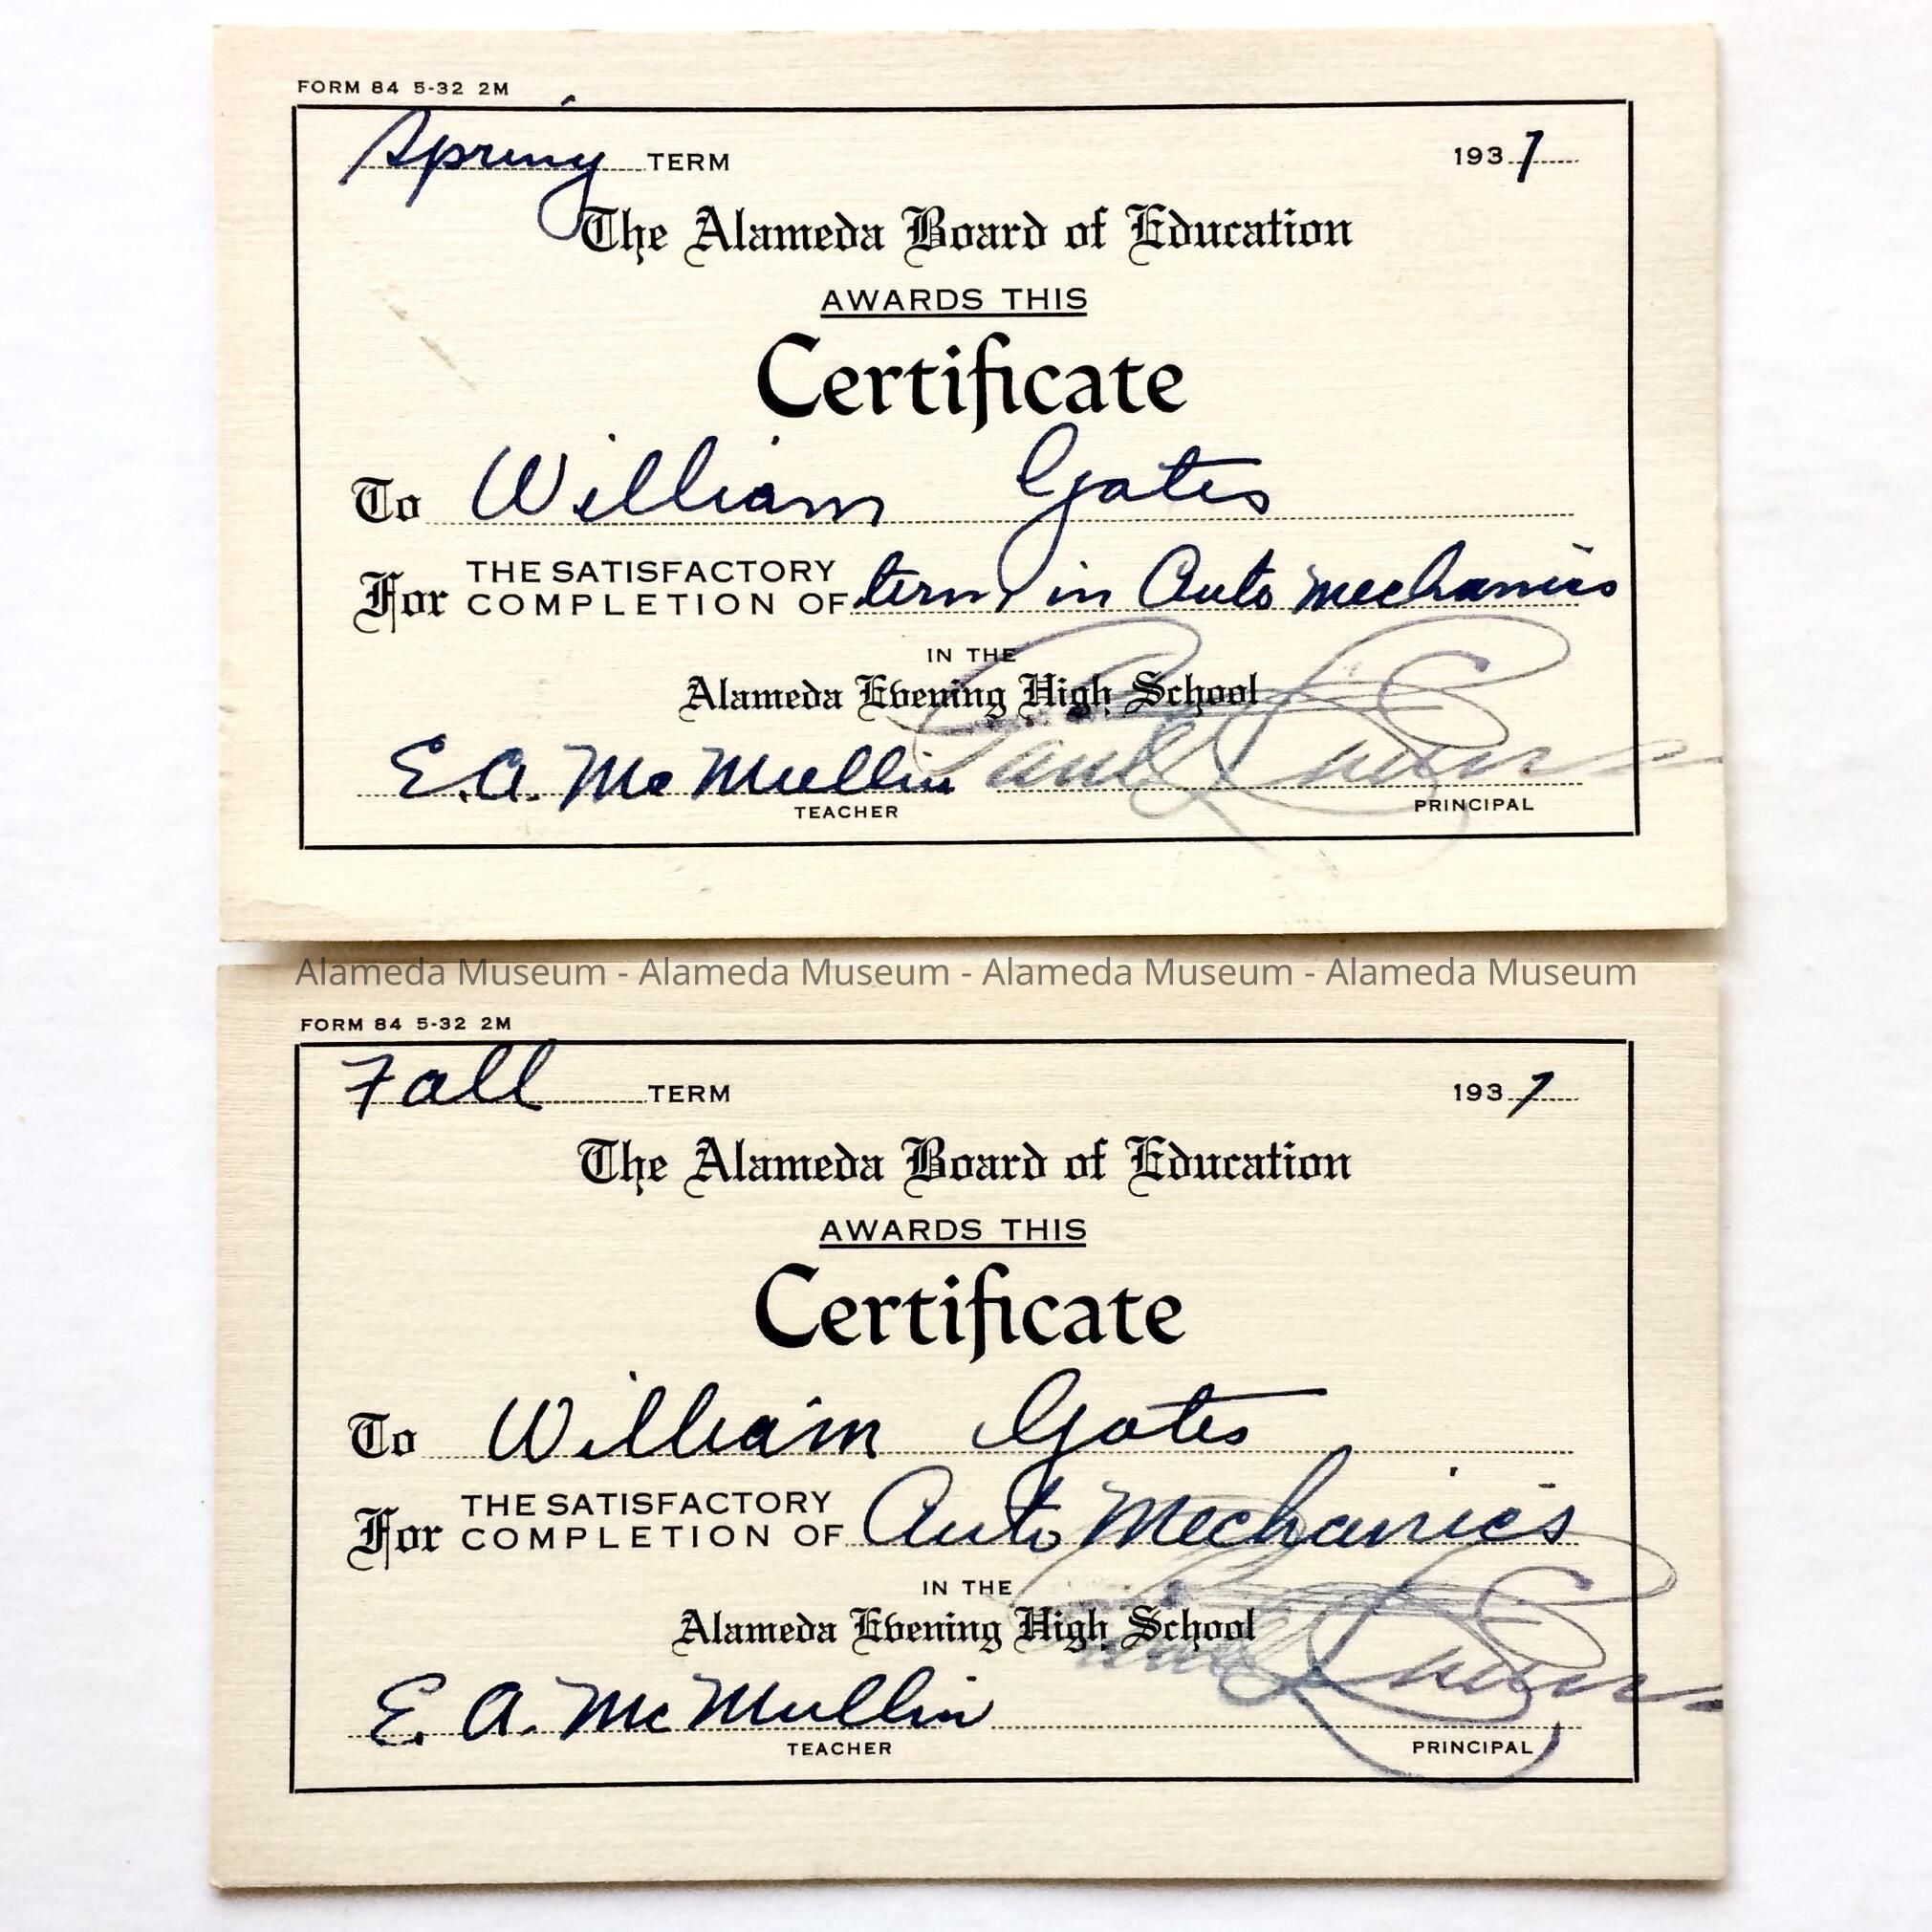 FORM 84 5-32 2M
Spring TERM 1937
The Alameda Board of Education
AWARDS THIS
Certificate
To William Gates
For THE SATISFACTORY
COMPLETION OF term in Auto Mechanics
IN THE
Alameda Evening High School
E.A. McMullin Paul
TEACHER PRINCIPAL
Alameda Museum - Alameda Museum - Alameda Museum - Alameda Museum
FORM 84 5-32 2M
Fall TERM 1937
The Alameda Board of Education
AWARDS THIS
Certificate
To William Gates
For THE SATISFACTORY
COMPLETION OF Auto Mechanics
IN THE
Alameda Evening High School
E. A. McMullin
TEACHER PRINCIPAL